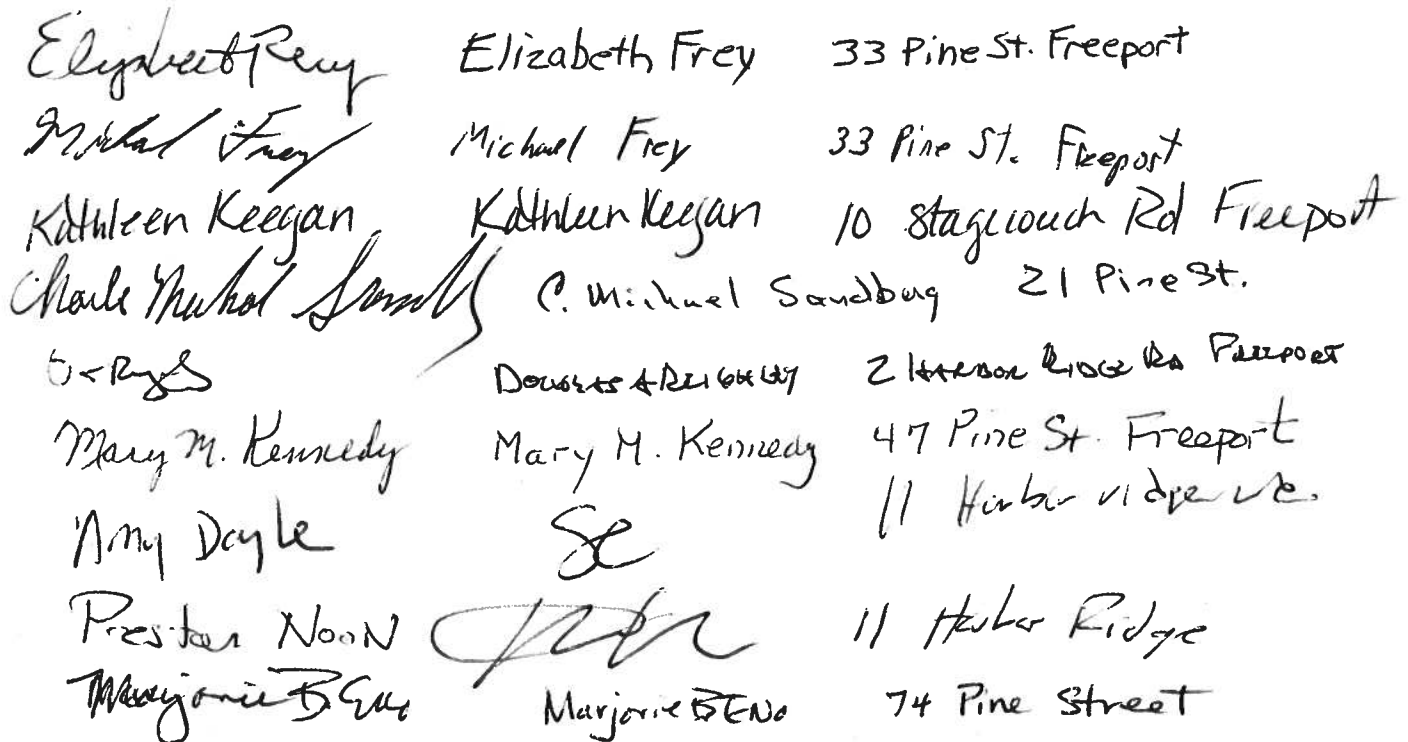 Elizabeth Frey Elizabeth Frey 33 Pine St. Freeport
Michael Frey Michael Frey 33 Pine St. Freeport
Kathleen Keegan Kathleen Keegan 10 Stagecoach Rd Freeport
Charles Michael C. Michael Sandburg 21 Pine St.
Douglas A Reighley 2 Harbor Ridge Rd Freeport
Mary M. Kennedy Mary M. Kennedy 47 Pine St. Freeport
Amy Doyle 11 Harbor ridge
Preston Noon 11 Harbor Ridge
Marjorie B Eno Marjorie B Eno 74 Pine Street